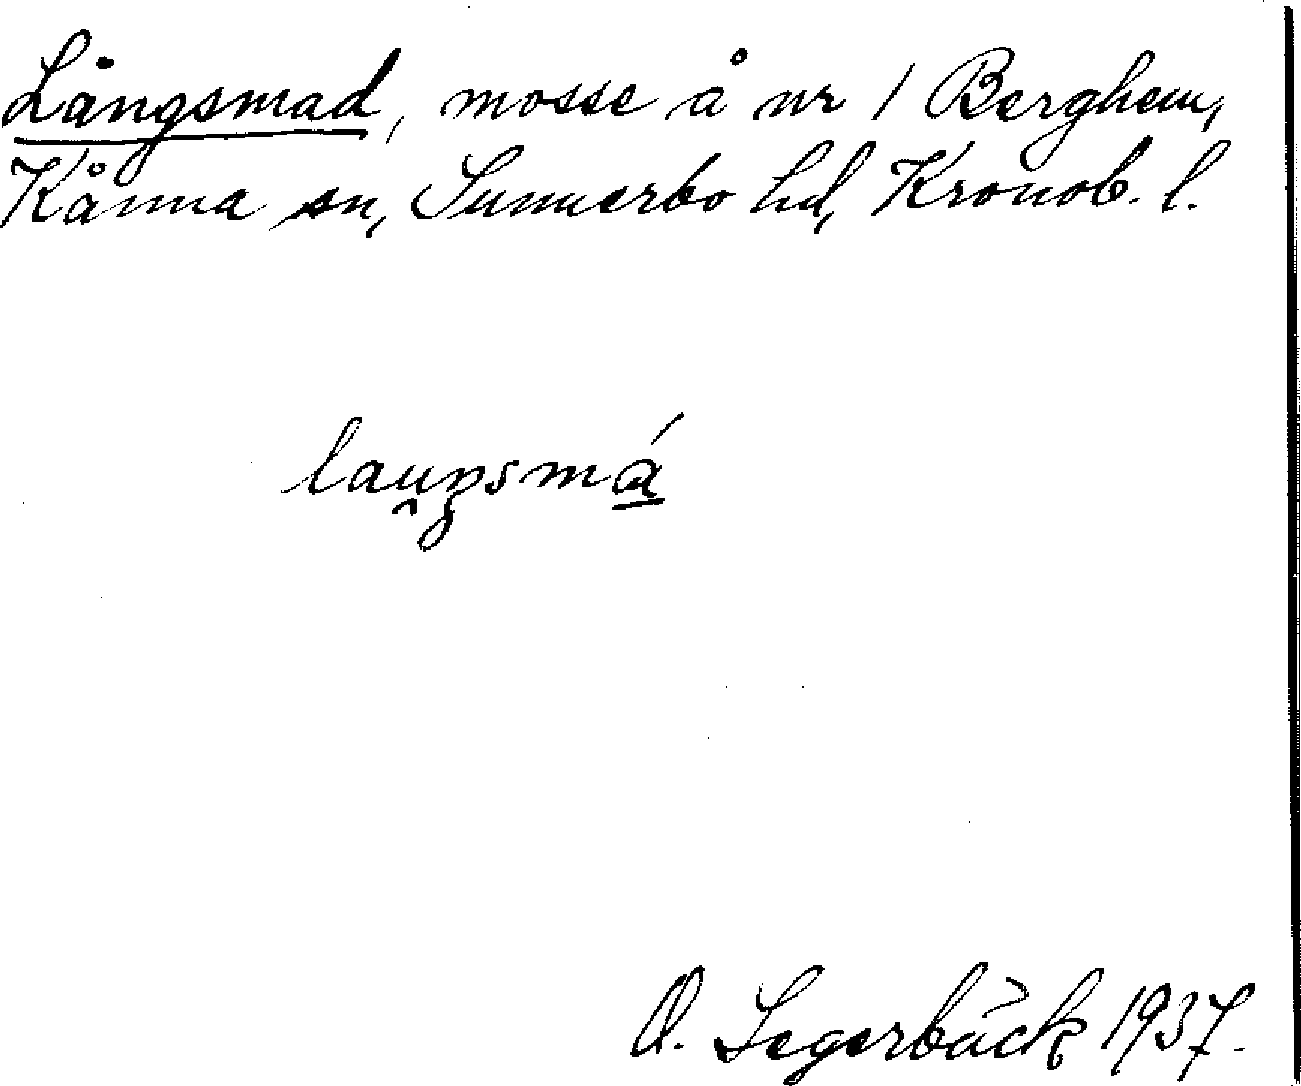 Långsmad, mosse å nr 1 Berghem,
Kånna sn, Sunnerbo hd, Kronob. l.
lau̯ŋsmá̲
O. Segerbäck 1937.